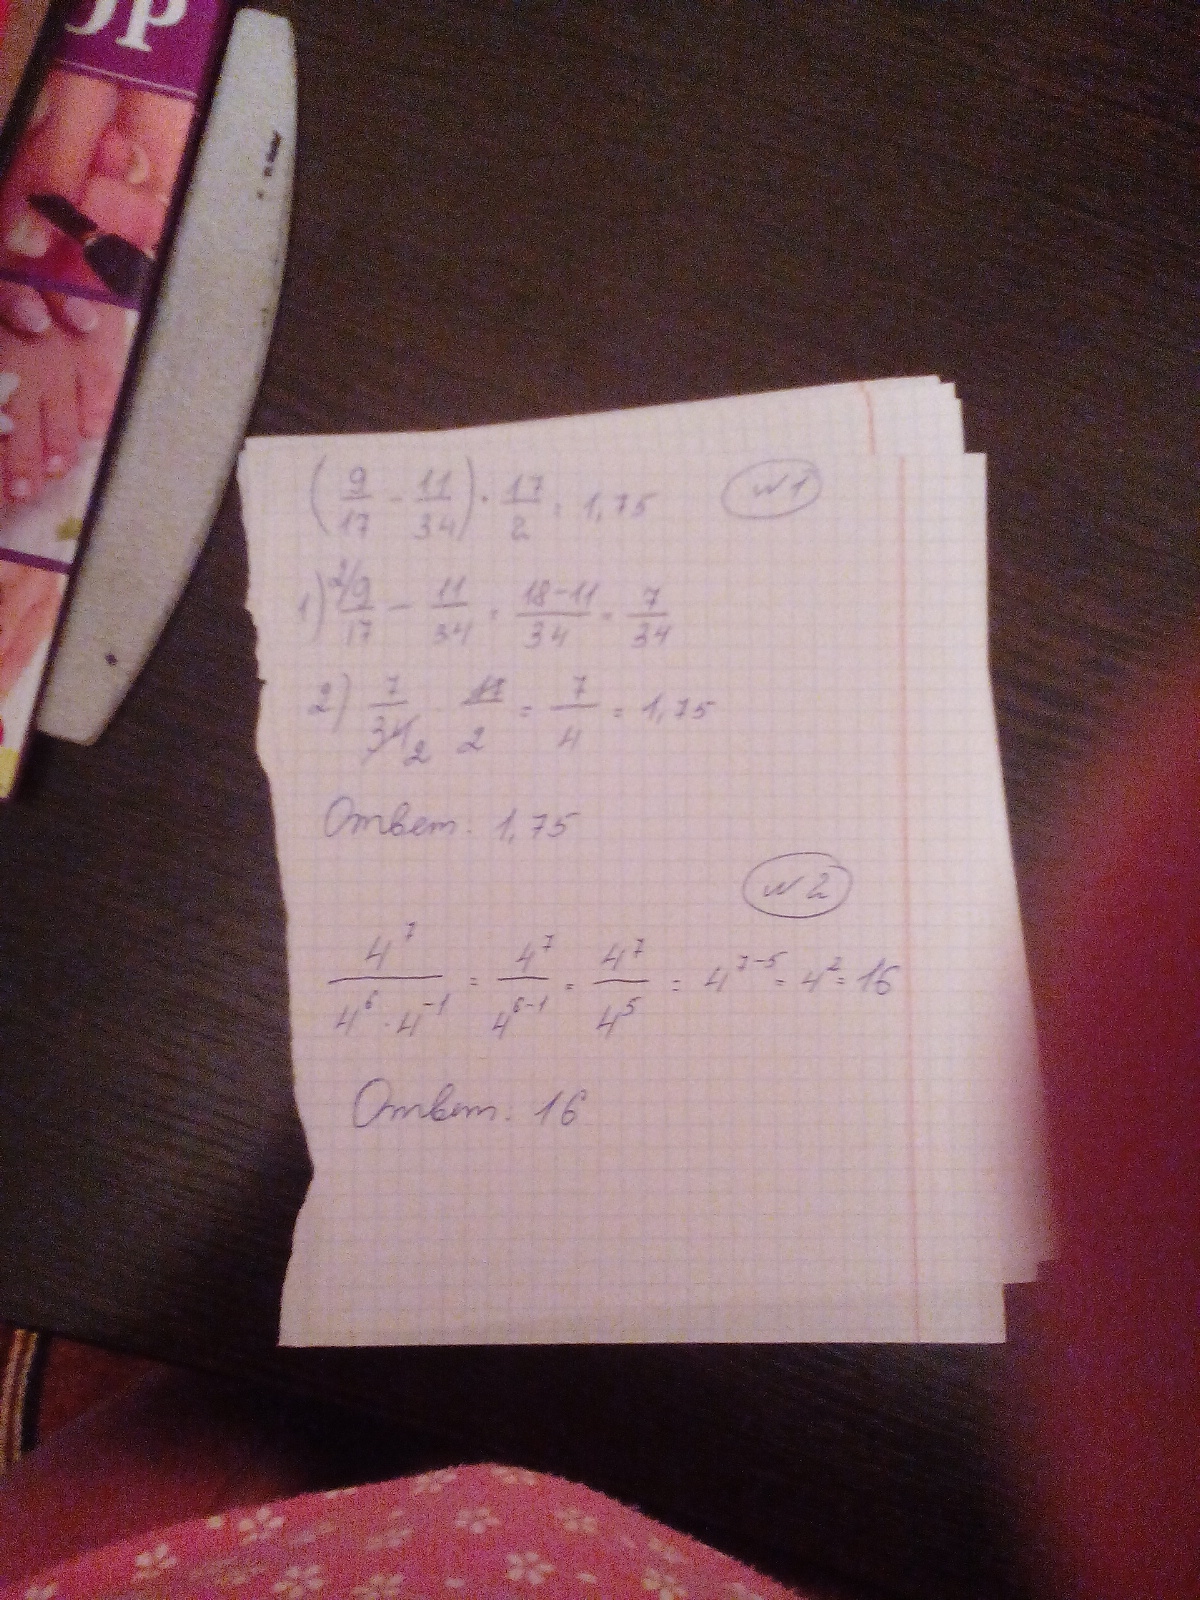 ОР
(9/17 - 11/34) · 17/2 = 1,75
№1
1) 2/9/17 - 11/34 = 18-11/34 = 7/34
2) 7/34 2 · 17/2 = 7/4 = 1,75
Ответ. 1,75
№2
4^7/4^6 · 4^-1 = 4^7/4^6-1 = 4^7/4^5 = 4^7-5 = 4^2 = 16
Ответ. 16